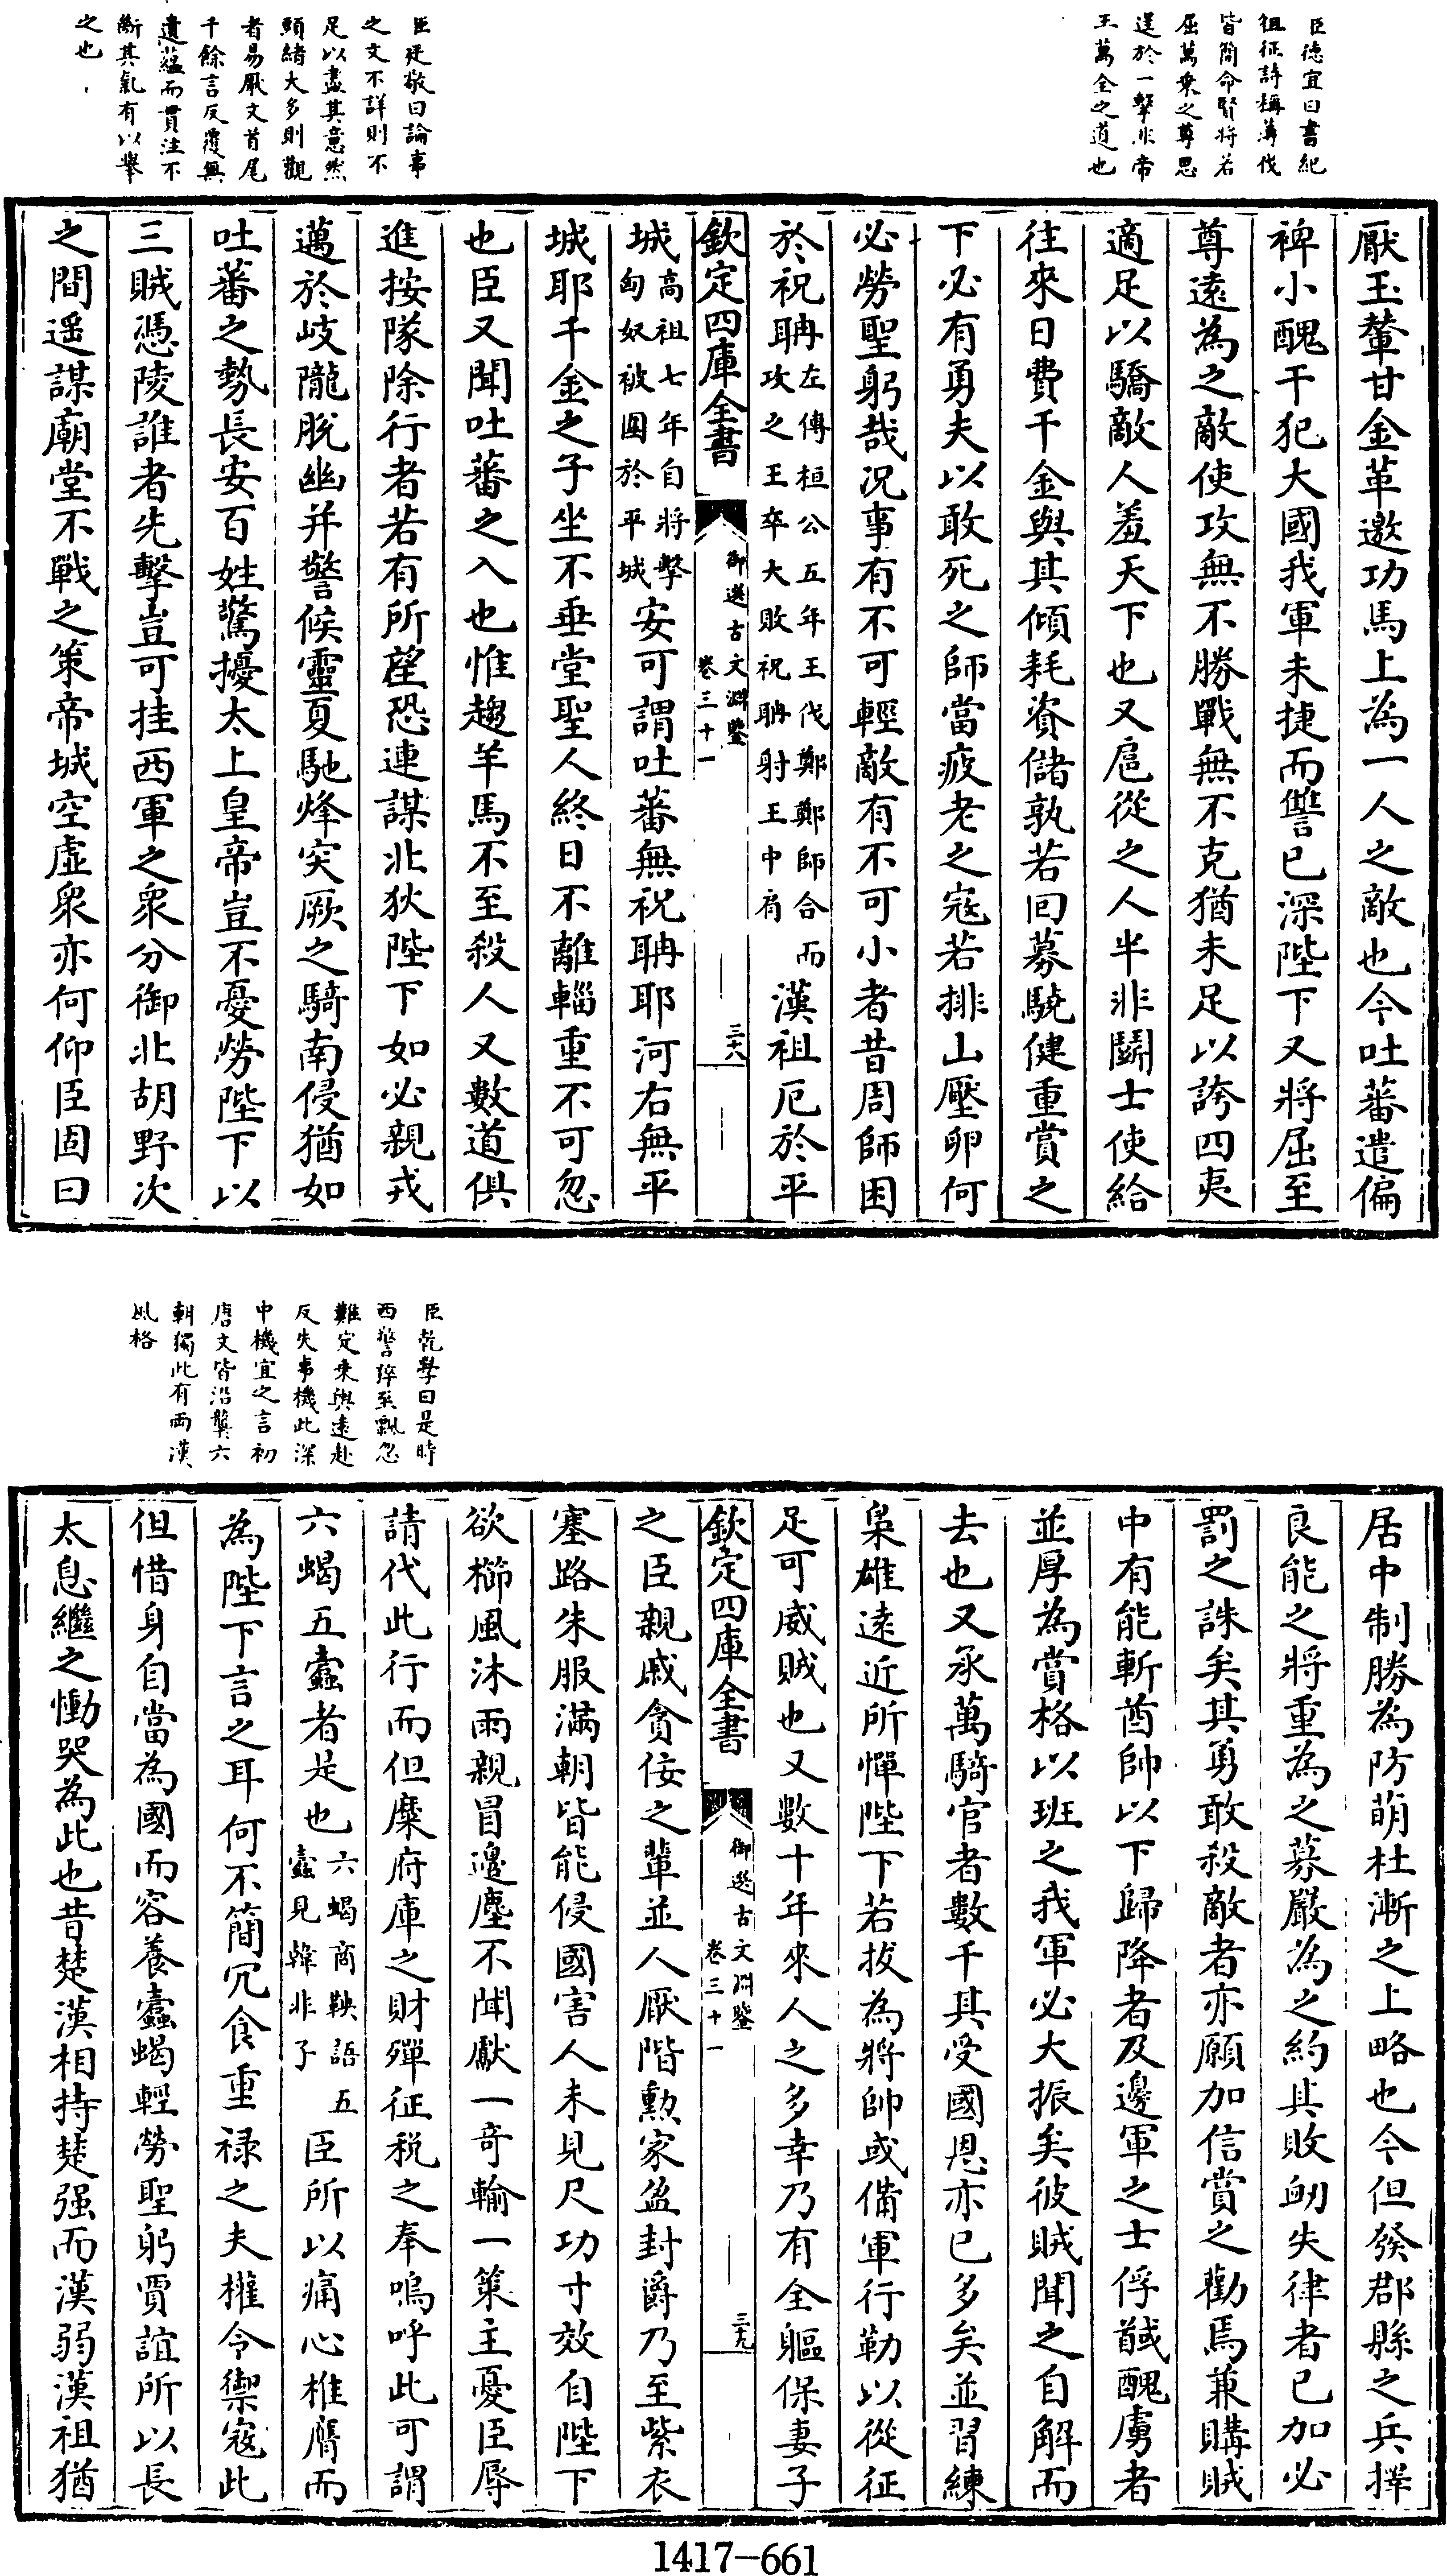 臣德宜曰書紀
徂征詩稱薄伐
皆簡命賢將若
屈萬乘之尊思
逞於一擊非帝
王萬全之道也
臣廷敬曰論事
之文不詳則不
足以盡其意然
頭緒大多則觀
者易厭文首尾
千餘言反覆無
遺蘊而貫注不
斷其氣有以舉
之也
厭玉輦甘金革邀功馬上為一人之敵也今吐蕃遣偏
裨小醜干犯大國我軍未捷而讐已深陛下又將屈至
尊遠為之敵使攻無不勝戰無不克猶未足以誇四夷
適足以驕敵人羞天下也又扈從之人半非鬪士使給
往來日費千金與其傾耗資儲孰若回募驍健重賞之
下必有勇夫以敢死之師當疲老之寇若排山壓卵何
必勞聖躬哉况事有不可輕敵有不可小者昔周師困
於祝聃左傳桓公五年王伐鄭鄭師合而攻之王卒大敗祝聃射王中肩漢祖厄於平
欽定四庫全書 御選古文淵鑒 卷三十一 三十八
城高祖七年自將擊匈奴被圍於平城安可謂吐蕃無祝聃耶河右無平
城耶千金之子坐不垂堂聖人終日不離輜重不可忽
也臣又聞吐蕃之入也惟趨羊馬不至殺人又數道俱
進按隊除行者若有所望恐連謀北狄陛下如必親戎
邁於岐隴脫幽并警候靈夏馳烽突厥之騎南侵猶如
吐蕃之勢長安百姓驚擾太上皇帝豈不憂勞陛下以
三賊憑陵誰者先擊豈可挂西軍之衆分御北胡野次
之間遥謀廟堂不戰之策帝城空虛衆亦何仰臣固曰
臣乾學曰是時
西警猝至飄忽
難定乘輿遠赴
反失事機此深
中機宜之言初
唐文皆沿襲六
朝獨此有兩漢
風格
居中制勝為防萌杜漸之上略也今但發郡縣之兵擇
良能之將重為之募嚴為之約其敗衂失律者已加必
罰之誅矣其勇敢殺敵者亦願加信賞之勸焉兼購賊
中有能斬酋帥以下歸降者及邊軍之士俘馘醜虜者
並厚為賞格以班之我軍必大振矣彼賊聞之自解而
去也又承萬騎官者數千其受國恩亦已多矣並習練
梟雄遠近所憚陛下若拔為將帥或備軍行勒以從征
足可威賊也又數十年來人之多幸乃有全軀保妻子
欽定四庫全書 御選古文淵鑒 卷三十一 三十九
之臣親戚貪佞之輩並人厭階勲家盈封爵乃至紫衣
塞路朱服滿朝皆能侵國害人未見尺功寸效自陛下
欲櫛風沐雨親冒邊塵不聞獻一奇輸一策主憂臣辱
請代此行而但糜府庫之財殫征稅之奉嗚呼此可謂
六蝎五蠹者是也六蝎商鞅語五蠹見韓非子臣所以痛心椎膺而
為陛下言之耳何不簡冗食重祿之夫權令禦寇此
但惜身自當為國而容養蠹蝎輕勞聖躬賈誼所以長
太息繼之慟哭為此也昔楚漢相持楚强而漢弱漢祖猶
1417-661